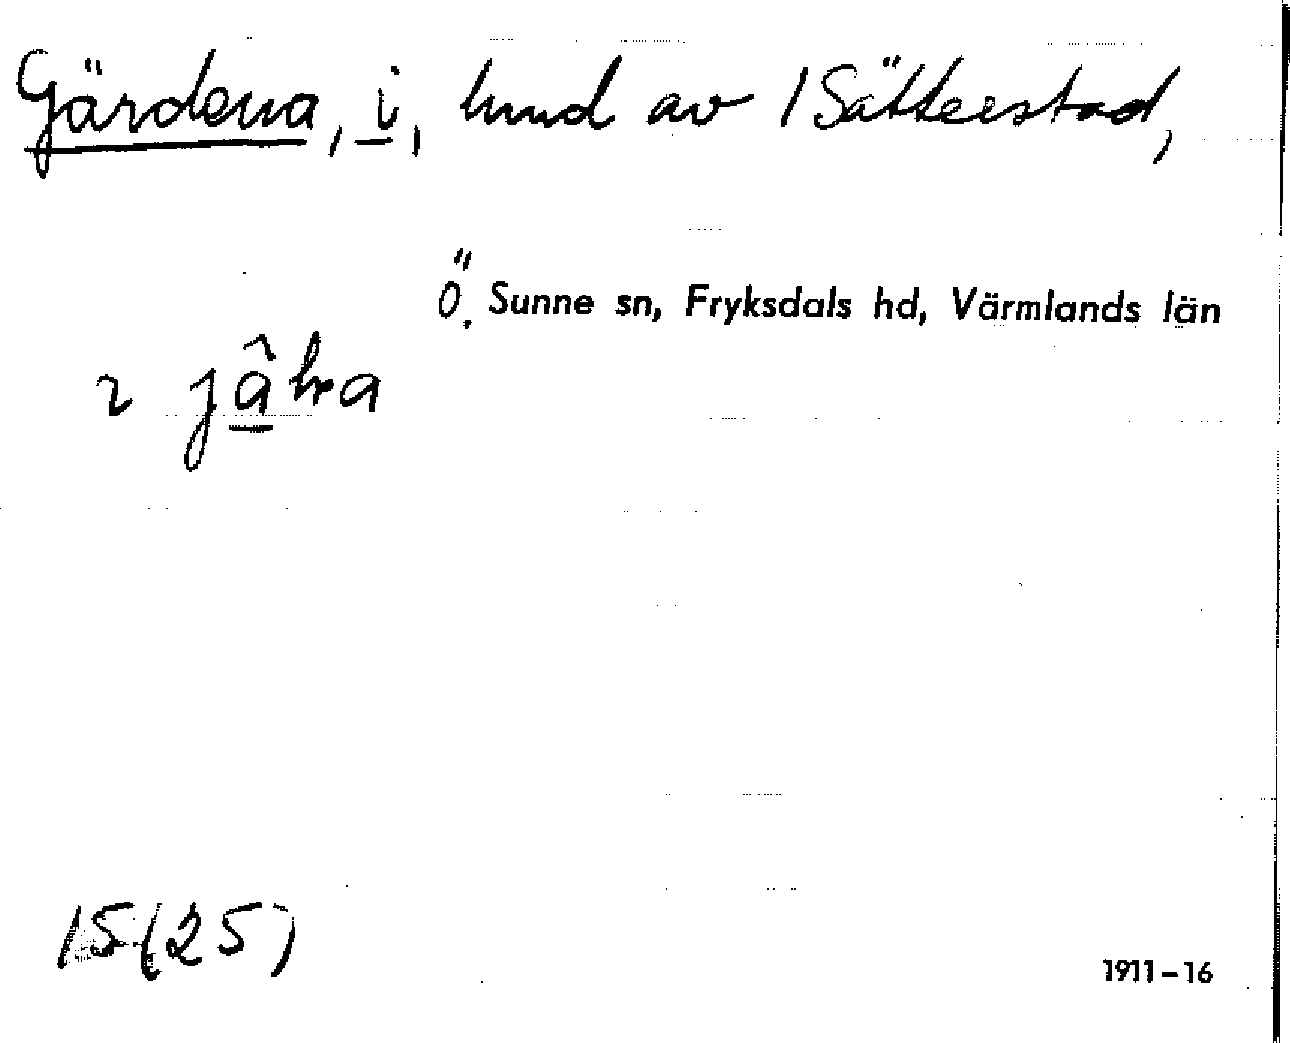 Gärdena, i, lund av 1 Sätterstad,
Ö. Sunne sn, Fryksdals hd, Värmlands län
15(25)
1911-16